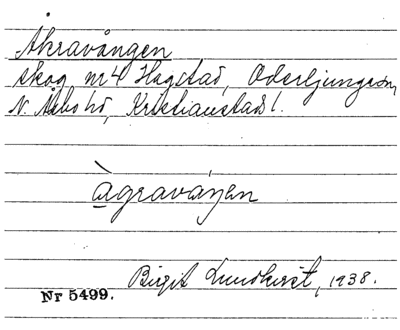 Åkravången
skog nr 4 Hagstad, Oderljungasn,
N. Åsbo hd, Kristianstads l.
àgraváŋen
Birgit Lundkvist, 1938.
Nr 5499.